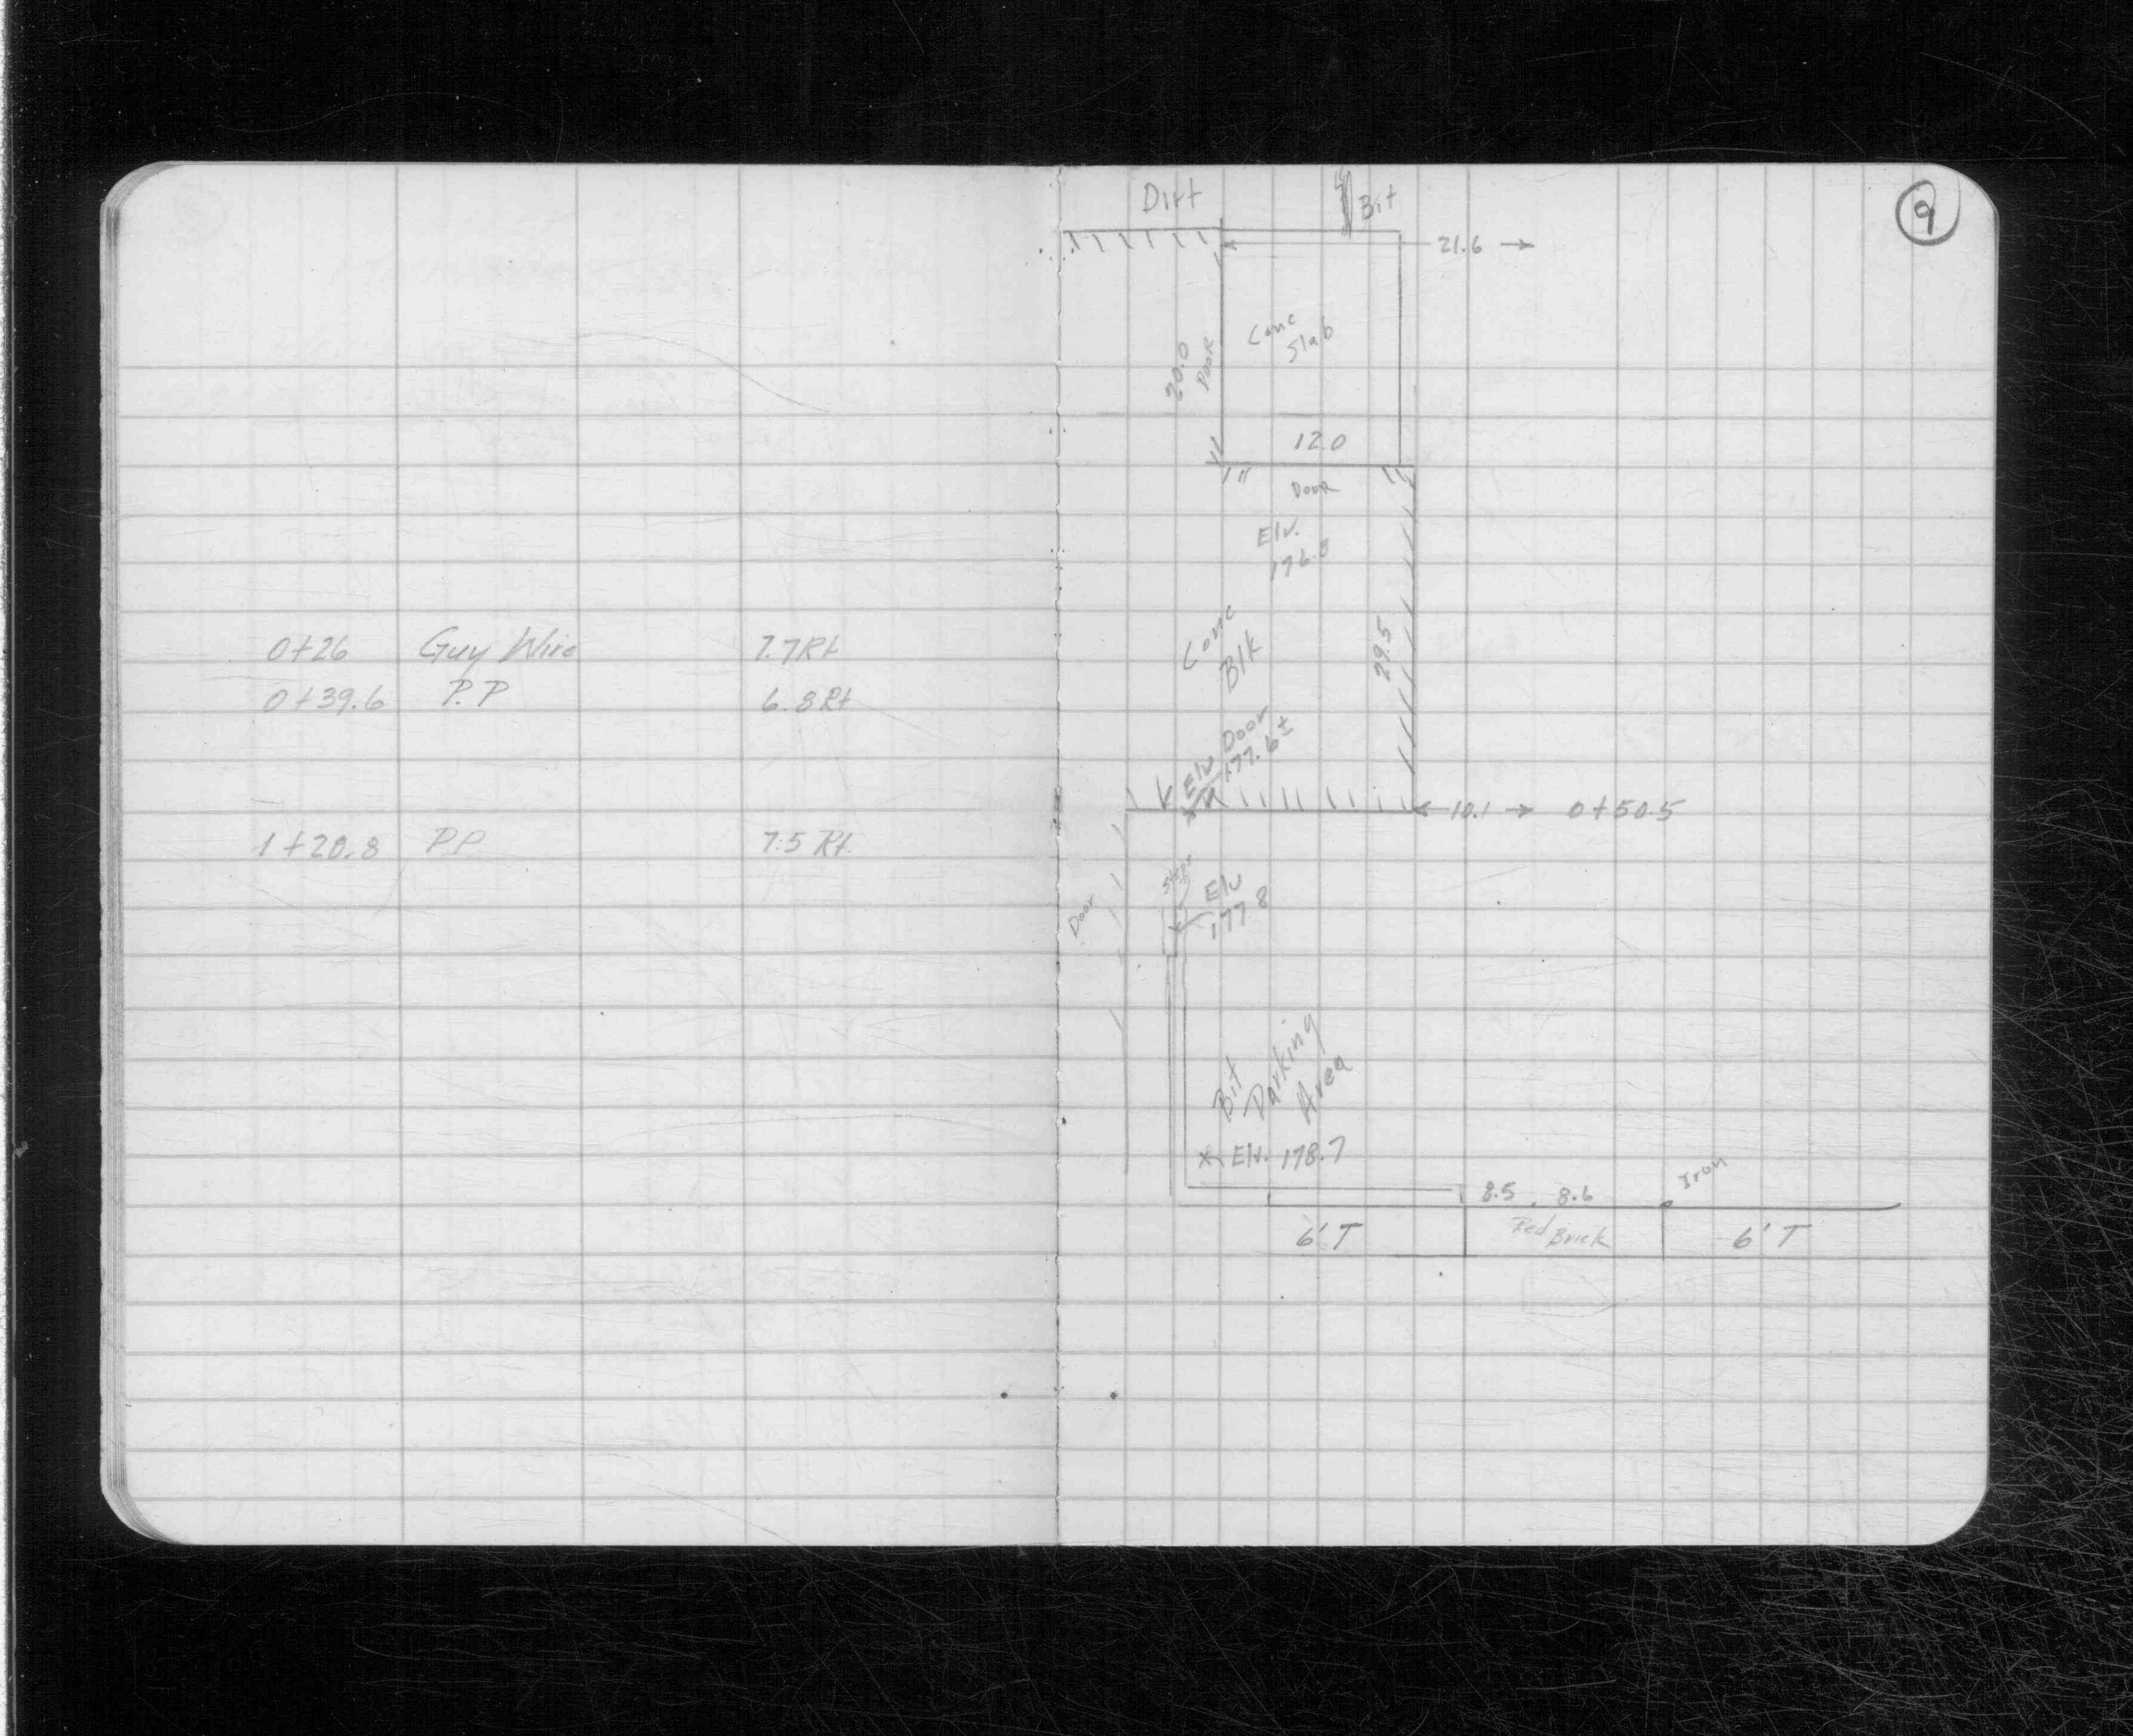 0+26 Guy Wire 7.7 Rt
0+39.6 P.P 6.8 Rt
1+20.8 P.P 7.5 Rt.
9
Dirt
Bit
21.6
Conc
Slab
20.0
Door
12.0
Door
Elv.
176.8
Conc
Blk
29.5
Elv Door
177.6±
10.1 0+50.5
Steps
Elv
177.8
Door
Bit
Parking
Area
Elv. 178.7
8.5 8.6
Iron
6' T
Red Brick
6' T